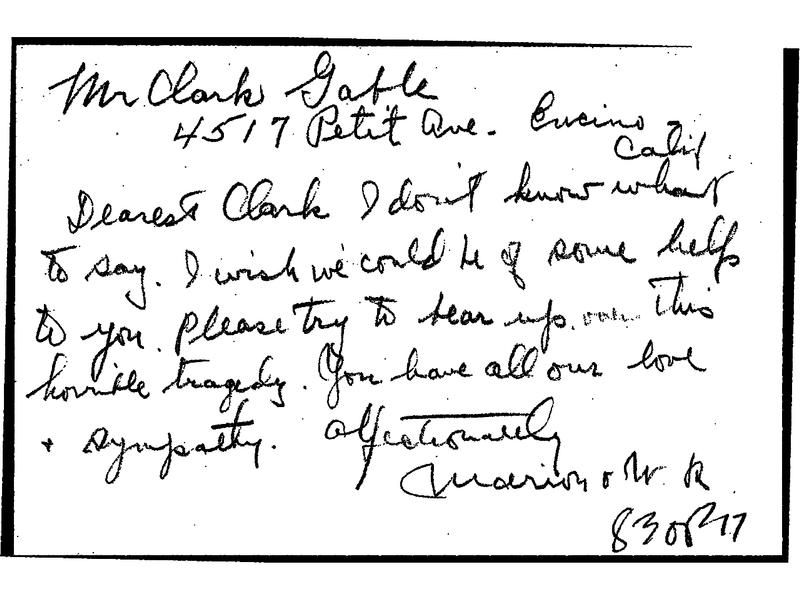 Mr Clark Gable
4517 Petit Ave. Encino
Calif.
Dearest Clark I don't know what
to say. I wish we could be of some help
to you. Please try to bear up over this
horrible tragedy. You have all our love
+ sympathy. Affectionately
Marion + W. R.